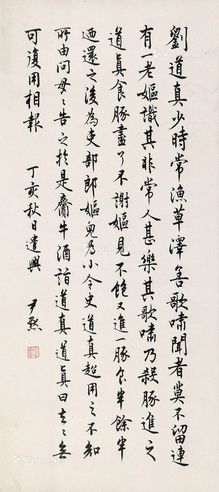 劉道真少時常漁草澤善歌嘯聞者莫不留連
有一老嫗識其非常人甚樂其歌嘯乃殺豚進之
道真食豚盡了不謝嫗見不飽又進一豚食半餘半
迺還之後為吏部郎嫗兒為小令史道真超用之不知
所由問母母告之於是齎牛酒詣道真道真曰去去無
可復用相報
丁亥秋日遣興
尹默